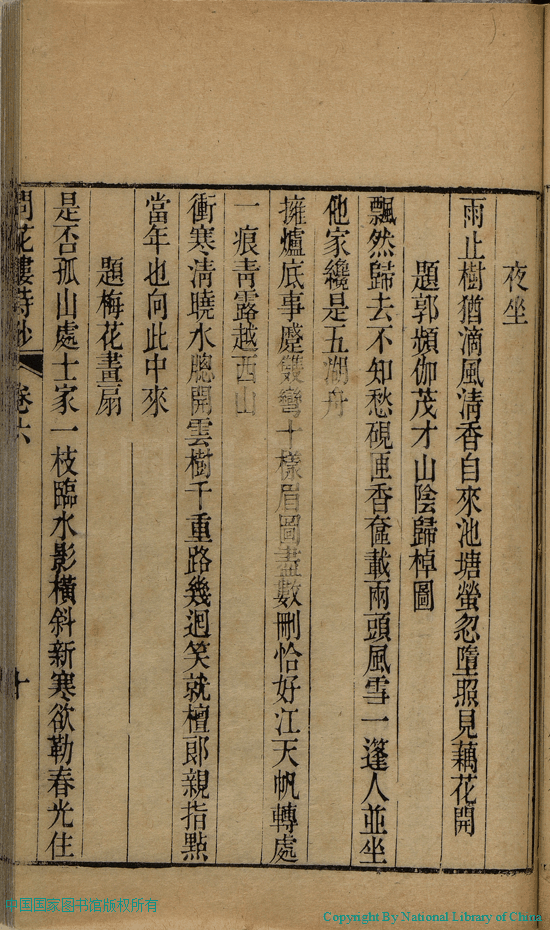 夜坐
雨止樹猶滴風淸香自來池塘螢忽墮照見藕花開
題郭頻伽茂才山陰歸棹圖
飄然歸去不知愁硯匣香奩載兩頭風雪一篷人並坐
他家纔是五湖舟
擁爐底事蹙雙彎十樣眉圖盡數刪恰好江天帆轉處
一痕靑露越西山
衝寒淸曉水牕開雲樹千重路幾迴笑就檀郞親指點
當年也向此中來
題梅花畫扇
是否孤山處士家一枝臨水影橫斜新寒欲勒春光住
問花樓詩鈔 卷六 十
中国国家图书馆版权所有
Copyright By National Library of China